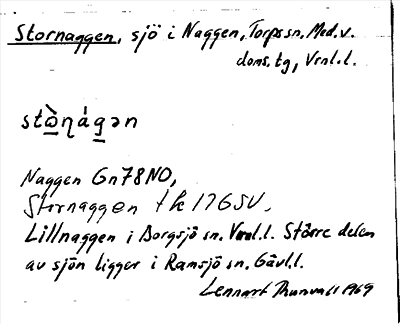 Stornaggen, sjö i Naggen, Torps sn, Med. v.
doms. tg, Vrnl. l.
stɷ̀ɳágən
Naggen Gn78NO,
Stornaggen tk 17G SV,
Lillnaggen i Borgsjö sn. Vrnl. l. Större delen
av sjön ligger i Ramsjö sn. Gävl. l.
Lennart Thunvall 1969